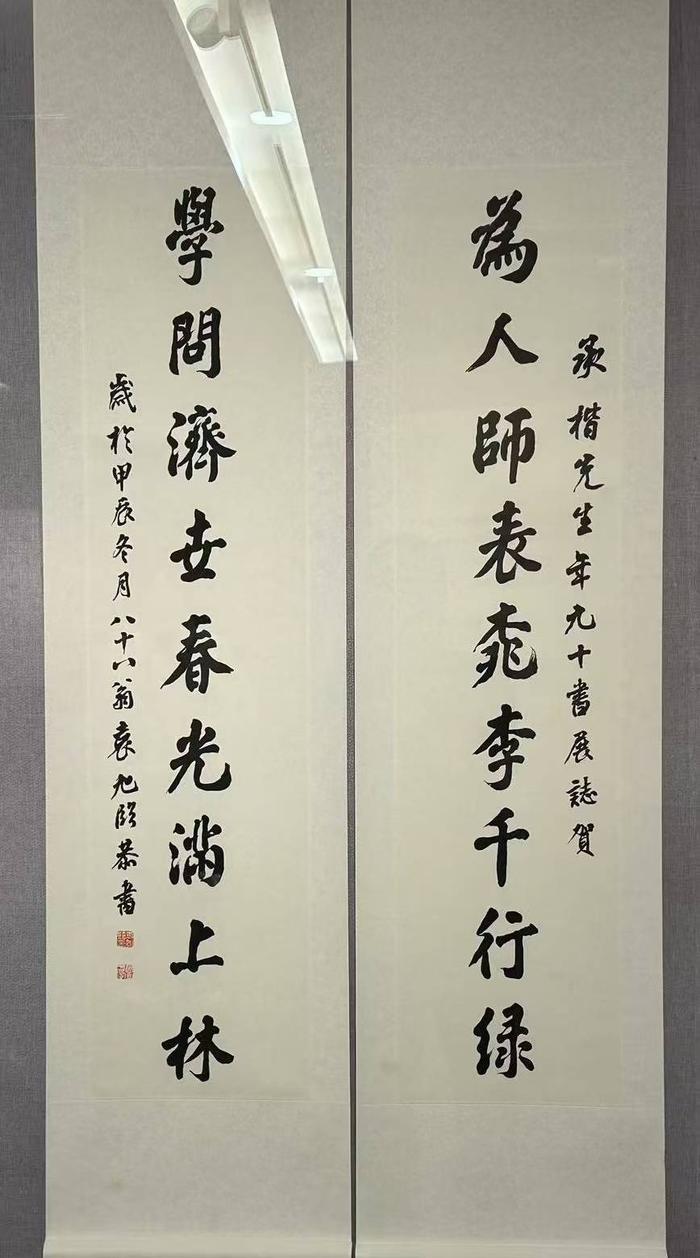 承楷先生年九十書展誌賀
為人師表桃李千行綠
學問濟世春光滿上林
歲於甲辰冬月八十八翁袁旭臨恭書